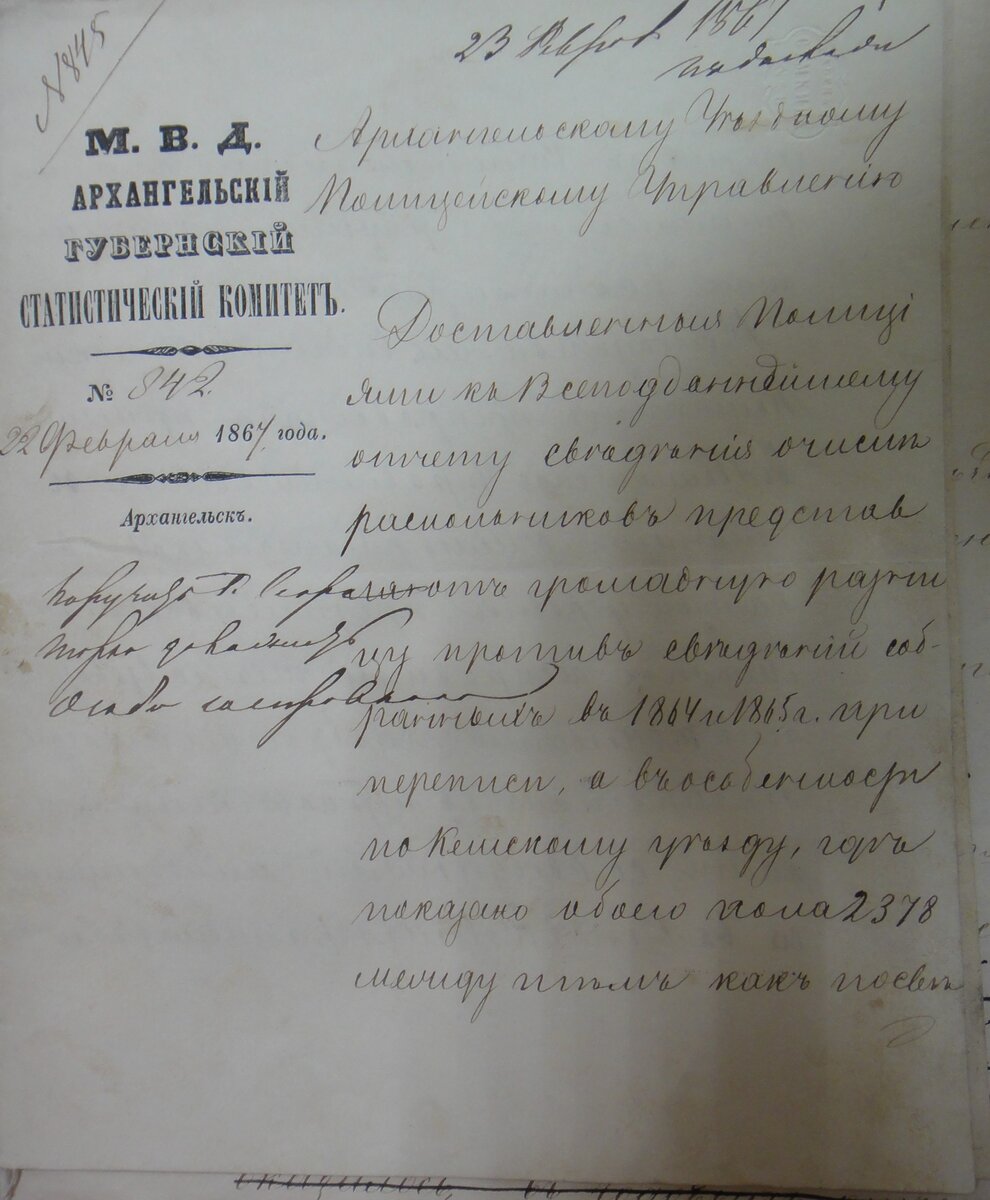 N 845
23 Феврал 1867
М. В. Д.
АРХАНГЕЛЬСКІЙ
ГУБЕРНСКІЙ
СТАТИСТИЧЕСКІЙ КОМИТЕТЪ.
№ 842.
22 Февраля 1867 года.
Архангельскъ.
Архангельскому Уѣздному
Полицейскому Управленію
Доставленныя Полиці
ями къ Всеподданнѣйшему
отчету свѣдѣнія о числѣ
раскольниковъ представ
ляютъ громадную разни
цу противъ свѣдѣній соб-
ранныхъ въ 1864 и 1865 г. при
переписи, а въ особенности
по Кемскому уѣзду, гдѣ
показано обоего пола 2378
между тѣмъ какъ по свѣ